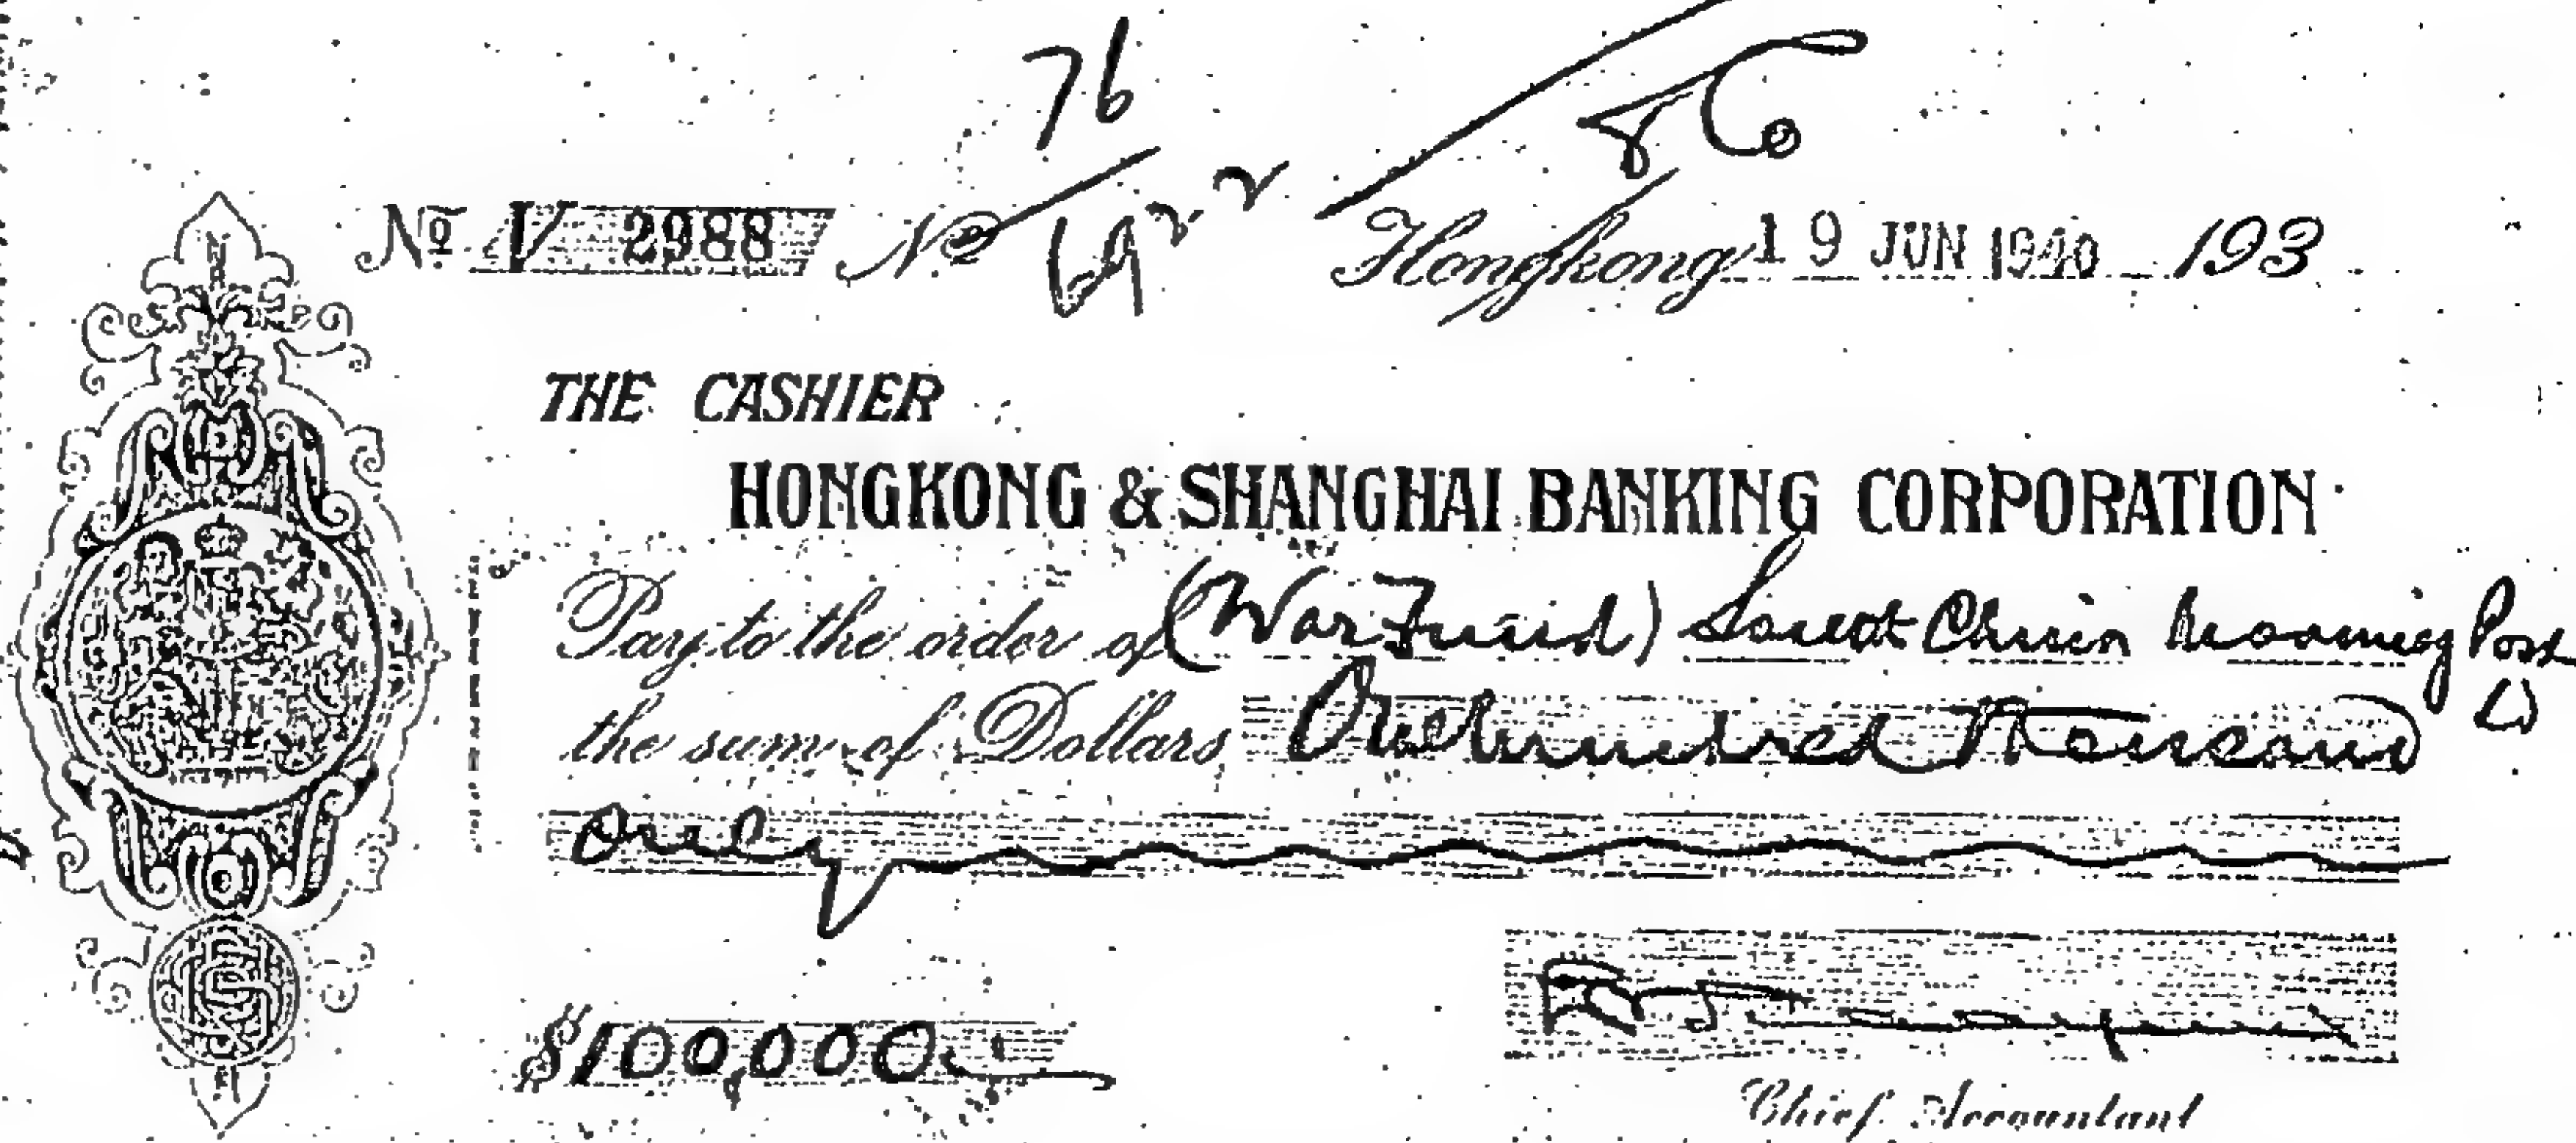 76
Nº V 2988 Nº 6922 Hongkong 19 JUN 1940 193
THE CASHIER
HONGKONG & SHANGHAI BANKING CORPORATION
Pay to the order of (War Fund) South China Morning Post
the sum of Dollars One hundred thousand
only
$100,000
Chief Accountant